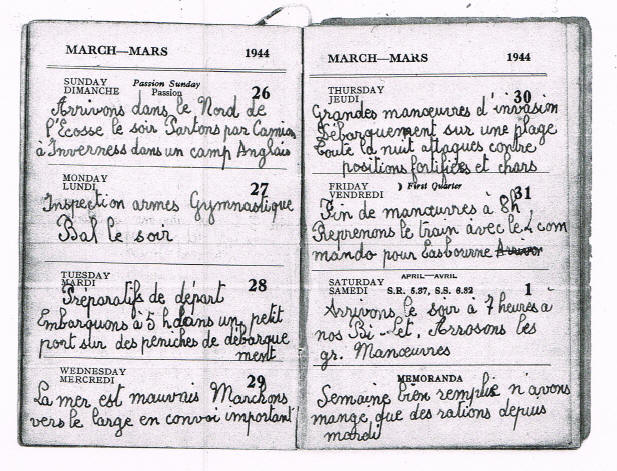 MARCH—MARS 1944
SUNDAY Passion Sunday
DIMANCHE Passion 26
Arrivons dans le Nord de
l'Ecosse le soir Partons par Camion
à Inverness dans un camp Anglais
MONDAY
LUNDI 27
Inspection armes Gymnastique
Bal le soir
TUESDAY
MARDI 28
Préparatifs de départ
Embarquons à 5 h dans un petit
port sur des peniches de débarque
ment
WEDNESDAY
MERCREDI 29
La mer est mauvais Marchons
vers le large en convoi important
MARCH—MARS 1944
THURSDAY
JEUDI 30
Grandes manœuvres d'invasion
Débarquement sur une plage
Toute la nuit attaques contre
positions fortifiées et chars
FRIDAY ☽ First Quarter
VENDREDI 31
Fin de manœuvres à 8h
Reprenons le train avec le 4 com
mando pour Easbourne Arrivon
APRIL—AVRIL
SATURDAY
SAMEDI S.R. 5.37, S.S. 6.32 1
Arrivons le soir à 7 heures à
nos Bi-let, Arrosons les
gr. Manœuvres
MEMORANDA
Semaine bien remplie n'avons
mange que des rations depuis
mardi